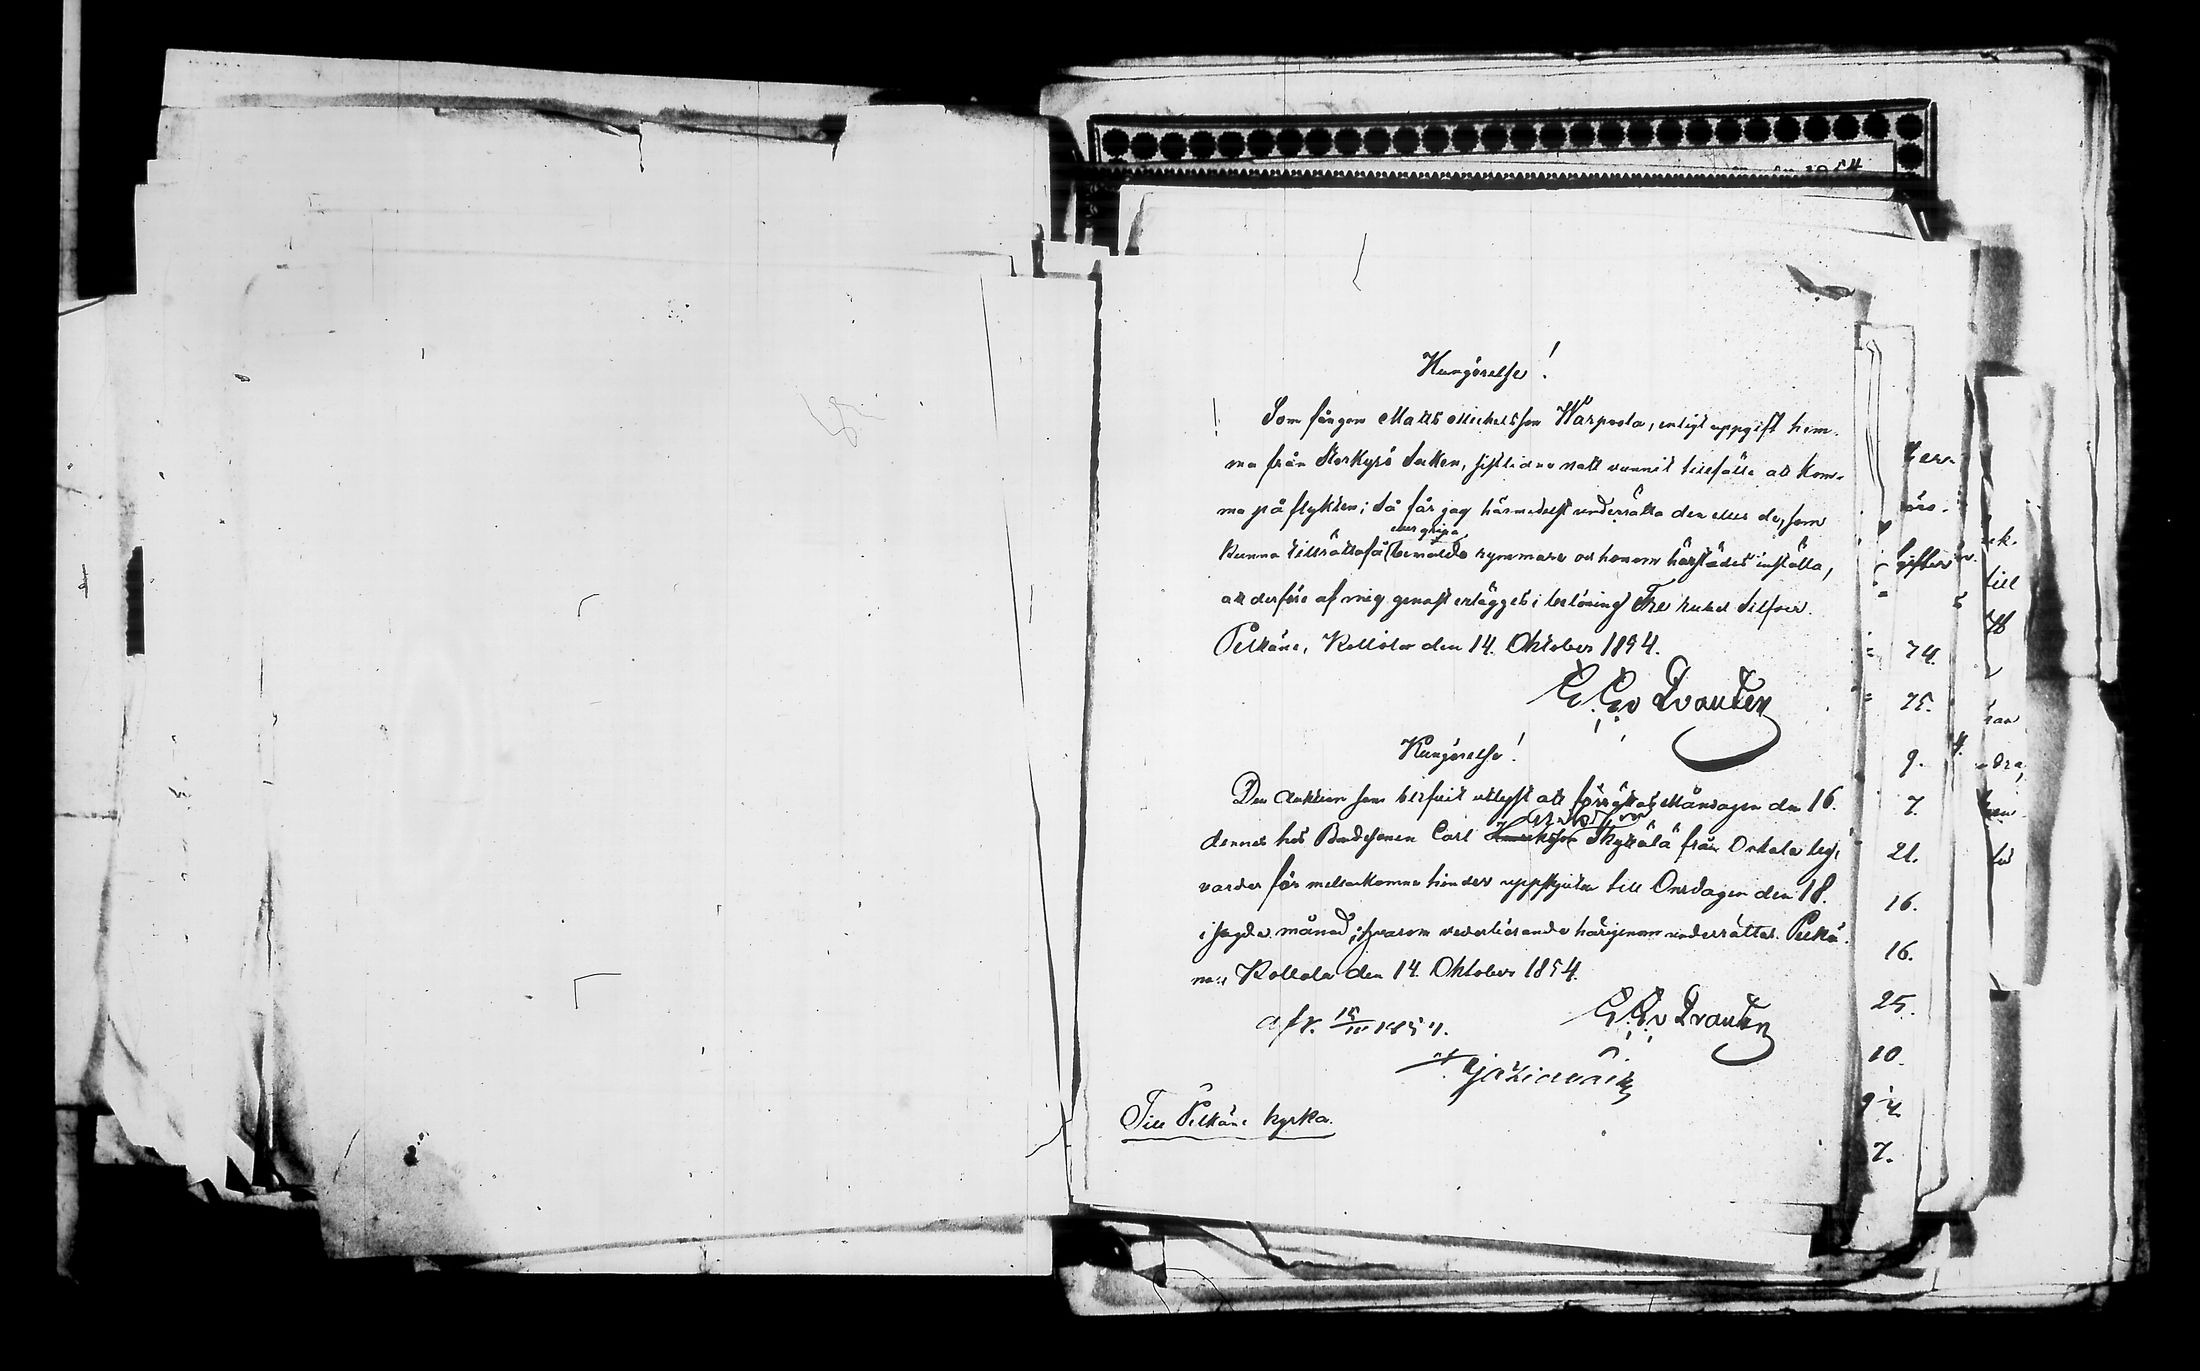 Kungörelse!
Som fången Matts Michelsson Warpula, enligt uppgift hem-
ma från Storkyrö Socken, sistlidne natt vunnit tillfälle att kom-
ma på flykten; Så får jag härmedelst underrätta den eller de, som
kunna tillrättafå eller gripa bemälde rymmare och honom härstädes inställa,
att derföre af mig genast erlägges i belöning Tre rubel Silfver.
Pelkäne, Kollola den 14. Oktober 1854.
Kungörelse!
Den Auktion som blifvit utlyst att förrättas Måndagen den 16.
dennes hos Bondesonen Carl Skyttälä från Onkala by,
varder för mellankomne hinder uppskjuten till Onsdagen den 18.
i sagde månad; hvarom vederbörande härigenom underrättas. Pelkä-
ne, Kollola den 14. Oktober 1854.
Till Pelkäne kyrka.
74.
75.
9.
7.
21.
16.
16.
25.
10.
7.
till